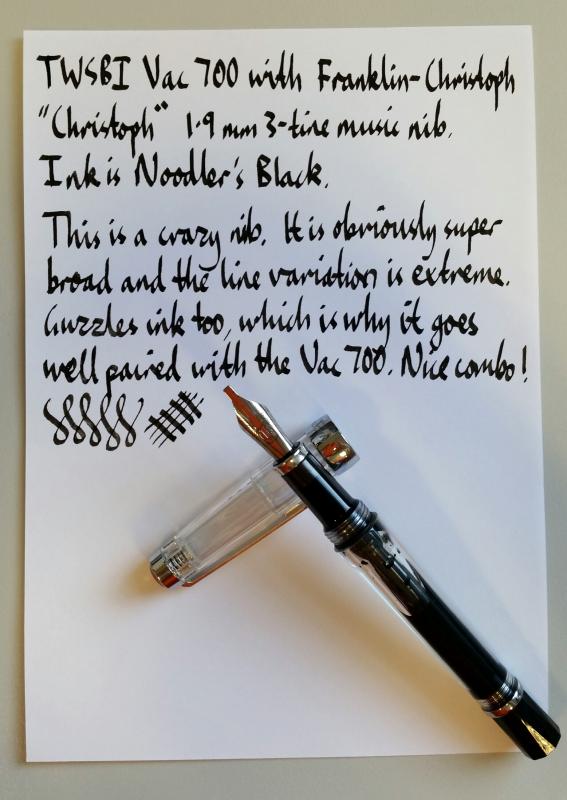 TWSBI Vac 700 with Franklin-Christoph
"Christoph" 1.9 mm 3-tine music nib.
Ink is Noodler's Black.
This is a crazy nib. It is obviously super
broad and the line variation is extreme.
Guzzles ink too, which is why it goes
well paired with the Vac 700. Nice combo!